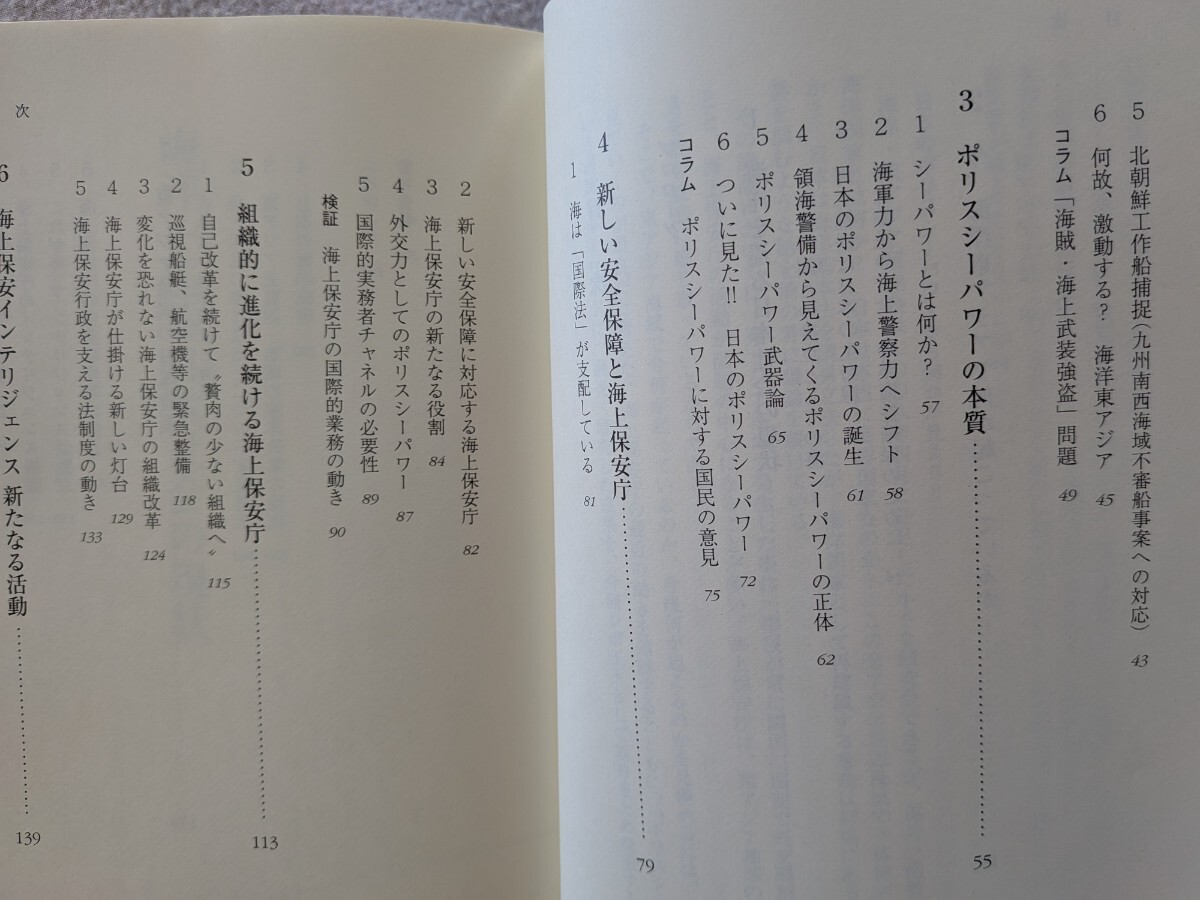 5 北朝鮮工作船捕捉(九州南西海域不審船事案への対応) 43
6 何故、激動する? 海洋東アジア 45
コラム「海賊・海上武装強盗」問題 49
3 ポリスシーパワーの本質 55
1 シーパワーとは何か? 57
2 海軍力から海上警察力へシフト 58
3 日本のポリスシーパワーの誕生 61
4 領海警備から見えてくるポリスシーパワーの正体 62
5 ポリスシーパワー武器論 65
6 ついに見た!! 日本のポリスシーパワー 72
コラム ポリスシーパワーに対する国民の意見 75
4 新しい安全保障と海上保安庁 79
1 海は「国際法」が支配している 81
2 新しい安全保障に対応する海上保安庁 82
3 海上保安庁の新たなる役割 84
4 外交力としてのポリスシーパワー 87
5 国際的実務者チャネルの必要性 89
検証 海上保安庁の国際的業務の動き 90
5 組織的に進化を続ける海上保安庁 113
1 自己改革を続けて〝贅肉の少ない組織へ〟 115
2 巡視船艇、航空機等の緊急整備 118
3 変化を恐れない海上保安庁の組織改革 124
4 海上保安庁が仕掛ける新しい灯台 129
5 海上保安行政を支える法制度の動き 133
6 海上保安インテリジェンス 新たなる活動 139
次